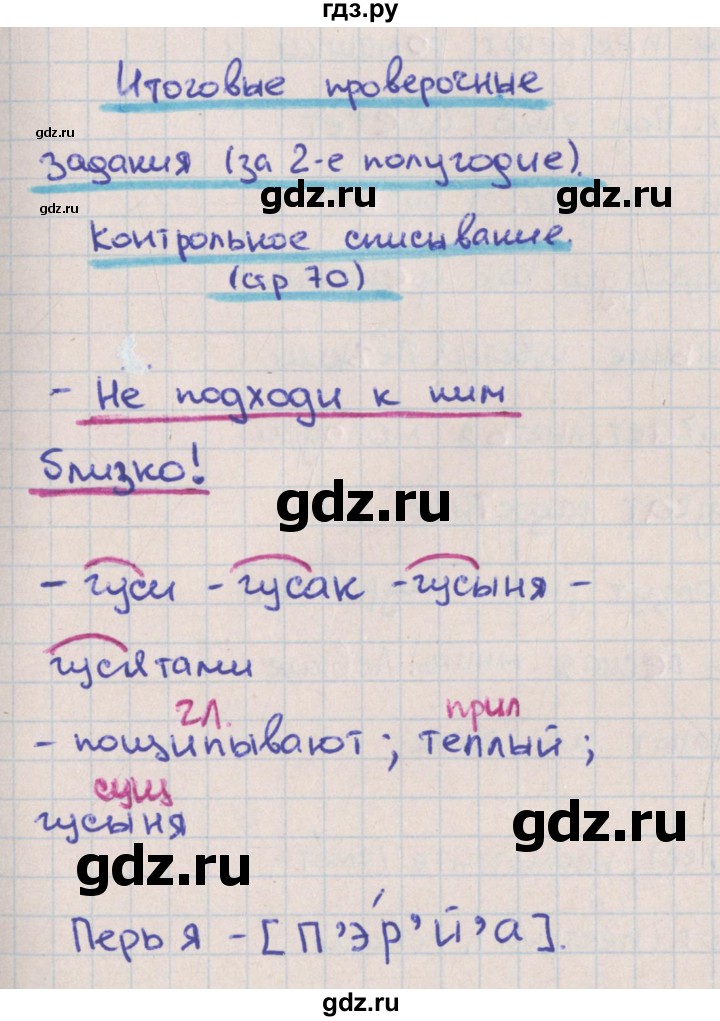 гдз.ру
Итоговые проверочные
gdz.ru
задания (за 2-е полугодие).
gdz.ru
gdz.ru
Контрольное списывание.
(стр 70)
- Не подходи к ним
близко!
gdz.ru
- гуси - гусак - гусыня -
гусятами
гл. прил
- пощипывают; теплый;
сущ
гусыня
gdz.ru
gdz.ru
Перья - [п’э́р’й’а].
gdz.ru
gdz.ru